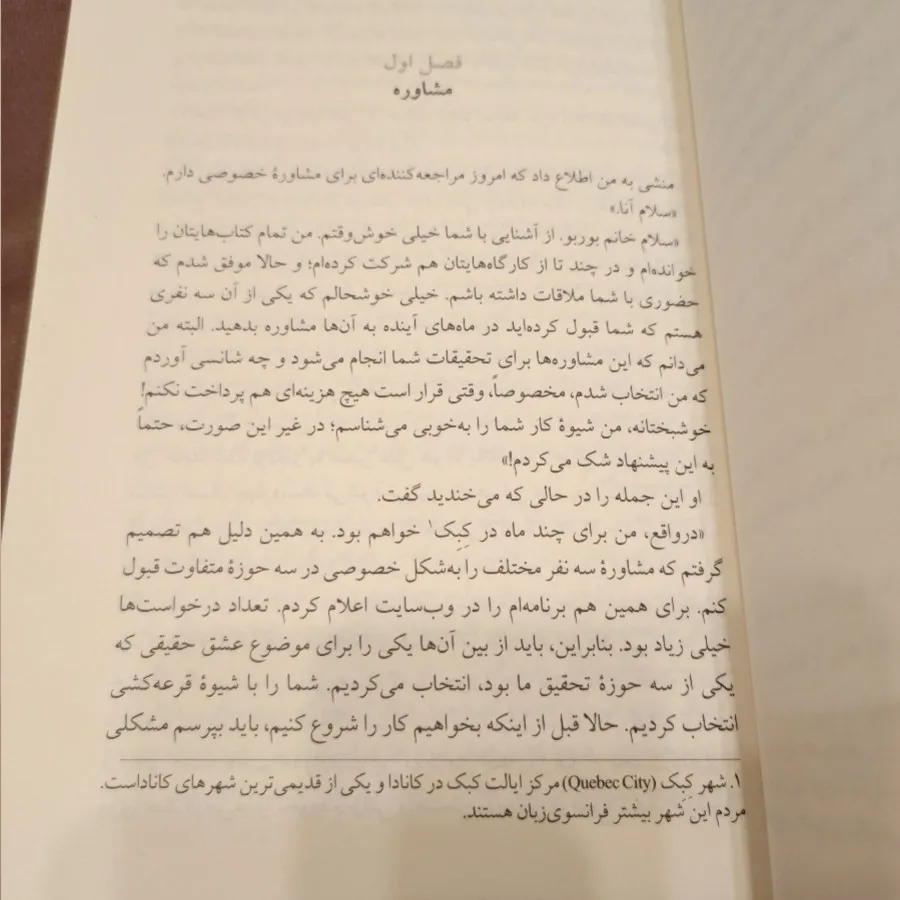 فصل اول
مشاوره
منشی به من اطلاع داد که امروز مراجعه‌کننده‌ای برای مشاورهٔ خصوصی دارم.
«سلام آنا.»
«سلام خانم بوربو. از آشنایی با شما خیلی خوش‌وقتم. من تمام کتاب‌هایتان را
خوانده‌ام و در چند تا از کارگاه‌هایتان هم شرکت کرده‌ام؛ و حالا موفق شدم که
حضوری با شما ملاقات داشته باشم. خیلی خوشحالم که یکی از آن سه نفری
هستم که شما قبول کرده‌اید در ماه‌های آینده به آن‌ها مشاوره بدهید. البته من
می‌دانم که این مشاوره‌ها برای تحقیقات شما انجام می‌شود و چه شانسی آوردم
که من انتخاب شدم، مخصوصاً، وقتی قرار است هیچ هزینه‌ای هم پرداخت نکنم!
خوشبختانه، من شیوهٔ کار شما را به‌خوبی می‌شناسم؛ در غیر این صورت، حتماً
به این پیشنهاد شک می‌کردم!»
او این جمله را در حالی که می‌خندید گفت.
«درواقع، من برای چند ماه در کِبِک۱ خواهم بود. به همین دلیل هم تصمیم
گرفتم که مشاورهٔ سه نفر مختلف را به‌شکل خصوصی در سه حوزهٔ متفاوت قبول
کنم. برای همین هم برنامه‌ام را در وب‌سایت اعلام کردم. تعداد درخواست‌ها
خیلی زیاد بود. بنابراین، باید از بین آن‌ها یکی را برای موضوع عشق حقیقی که
یکی از سه حوزهٔ تحقیق ما بود، انتخاب می‌کردیم. شما را با شیوهٔ قرعه‌کشی
انتخاب کردیم. حالا قبل از اینکه بخواهیم کار را شروع کنیم، باید بپرسم مشکلی
۱. شهر کِبِک (Quebec City) مرکز ایالت کبک در کانادا و یکی از قدیمی‌ترین شهرهای کاناداست.
مردم این شهر بیشتر فرانسوی‌زبان هستند.